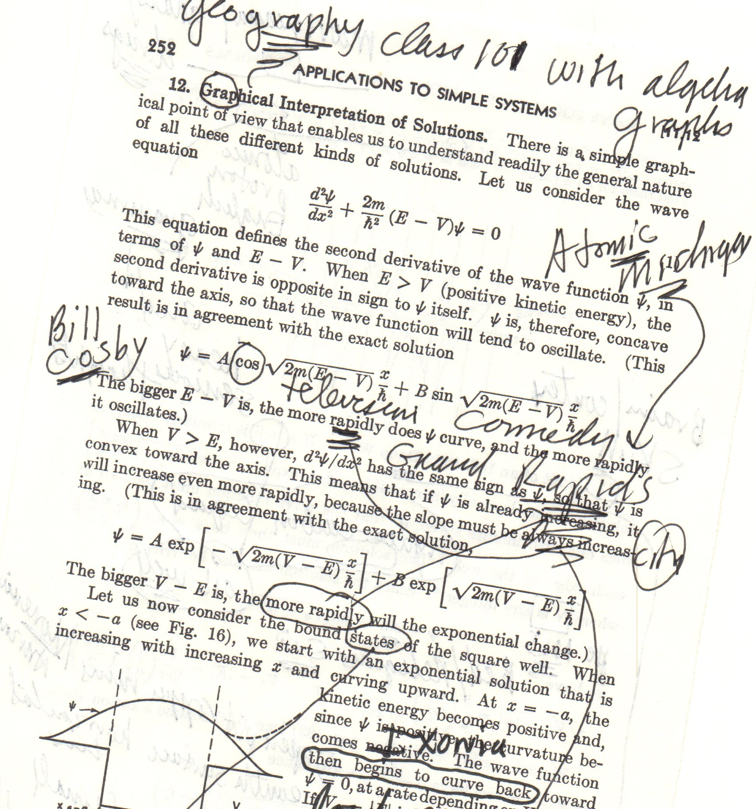 Geography class 101 with algebra
graphs
252
APPLICATIONS TO SIMPLE SYSTEMS
12. Graphical Interpretation of Solutions. There is a simple graph-
ical point of view that enables us to understand readily the general nature
of all these different kinds of solutions. Let us consider the wave
equation
d²ψ/dx² + 2m/ħ² (E − V)ψ = 0
Atomic
This equation defines the second derivative of the wave function ψ, in
terms of ψ and E − V. When E > V (positive kinetic energy), the
second derivative is opposite in sign to ψ itself. ψ is, therefore, concave
toward the axis, so that the wave function will tend to oscillate. (This
result is in agreement with the exact solution
Bill
Cosby
ψ = A cos √2m(E − V) x/ħ + B sin √2m(E − V) x/ħ
television Comedy
The bigger E − V is, the more rapidly does ψ curve, and the more rapidly
it oscillates.)
Grand Rapids
When V > E, however, d²ψ/dx² has the same sign as ψ, so that ψ is
convex toward the axis. This means that if ψ is already increasing, it
will increase even more rapidly, because the slope must be always increas-
ing. (This is in agreement with the exact solution,
city
ψ = A exp [− √2m(V − E) x/ħ] + B exp [√2m(V − E) x/ħ]
The bigger V − E is, the more rapidly will the exponential change.)
Let us now consider the bound states of the square well. When
x < −a (see Fig. 16), we start with an exponential solution that is
increasing with increasing x and curving upward. At x = −a, the
kinetic energy becomes positive and,
since ψ is positive, the curvature be-
Ixonia
comes negative. The wave function
then begins to curve back toward
ψ = 0, at a rate depending on
If V
ψ
V